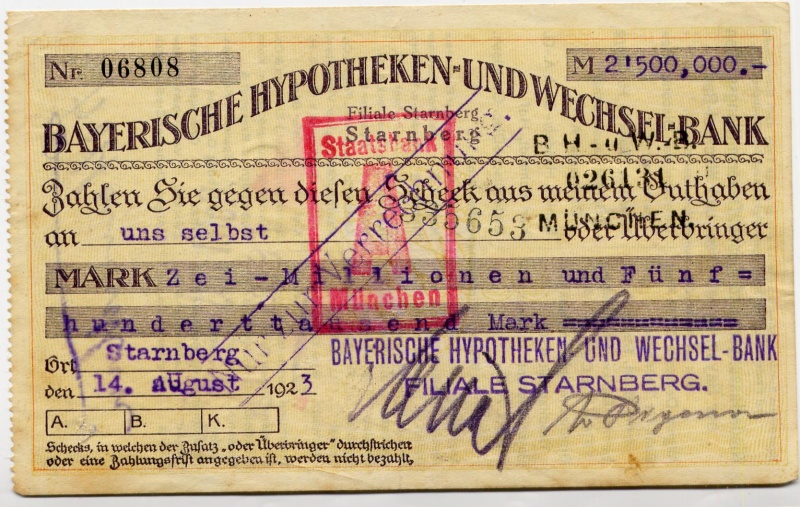 Nr. 06808
M 2'500,000.-
BAYERISCHE HYPOTHEKEN-UND WECHSEL-BANK
Filiale Starnberg
Starnberg
Staatsbank
München
B. H.-u. W.-B.
026131
MÜNCHEN
Nur zur Verrechnung
Zahlen Sie gegen diesen Scheck aus meinem Guthaben
35653
an uns selbst oder Überbringer
MARK Zei-Millionen und Fünf=
hunderttausend Mark
Ort Starnberg
den 14. August 1923
BAYERISCHE HYPOTHEKEN- UND WECHSEL-BANK
FILIALE STARNBERG.
A. B. K.
Schecks, in welchen der Zusatz „oder Überbringer" durchstrichen
oder eine Zahlungsfrist angegeben ist, werden nicht bezahlt.